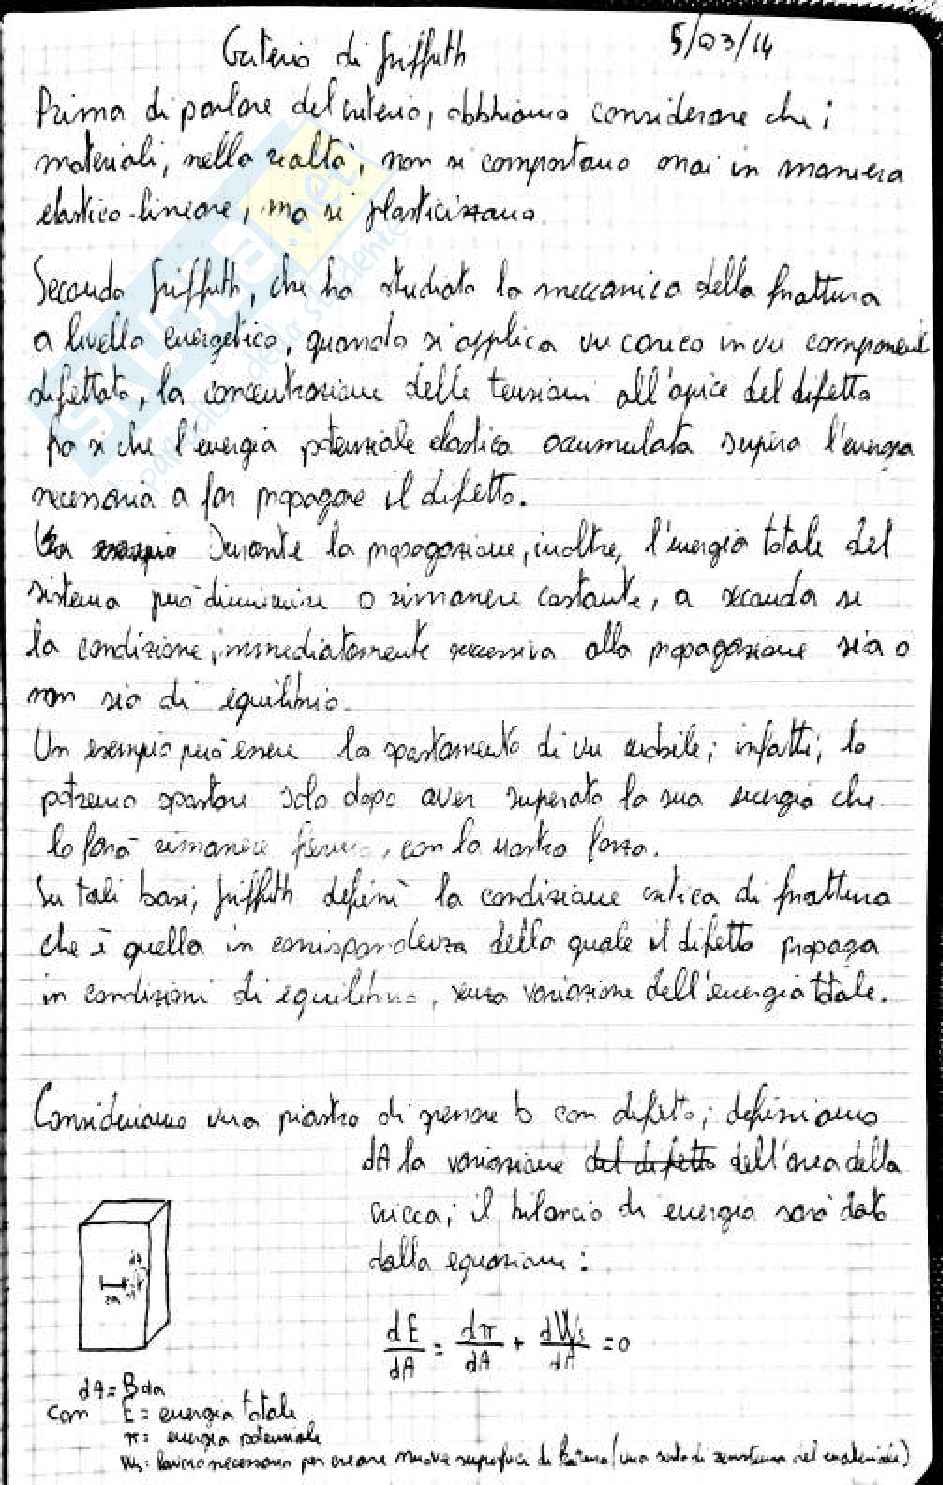 Criterio di Griffith 5/03/14
Prima di parlare del criterio, dobbiamo considerare che i
materiali, nella realtà, non si comportano mai in maniera
elastico-lineare, ma si plasticizzano.
Secondo Griffith, che ha studiato la meccanica della frattura
a livello energetico, quando si applica un carico in un componente
difettato, la concentrazione delle tensioni all'apice del difetto
fa sì che l'energia potenziale elastica accumulata supera l'energia
necessaria a far propagare il difetto.
Durante la propagazione, inoltre, l'energia totale del
sistema può diminuire o rimanere costante, a seconda se
la condizione, immediatamente successiva alla propagazione sia o
non sia di equilibrio.
Un esempio può essere lo spostamento di un mobile; infatti, lo
potremo spostare solo dopo aver superato la sua energia che
lo farà rimanere fermo, con la nostra forza.
Su tali basi, Griffith definì la condizione critica di frattura
che è quella in corrispondenza della quale il difetto propaga
in condizioni di equilibrio, senza variazione dell'energia totale.
Consideriamo una piastra di spessore b con difetto; definiamo
dA la variazione del difetto dell'area della
cricca; il bilancio di energia sarà dato
dalla equazione:
dE/dA = dπ/dA + dWs/dA = 0
dA = Bda
con E = energia totale
π = energia potenziale
Ws = lavoro necessario per creare nuove superfici di frattura (una sorta di resistenza del materiale)